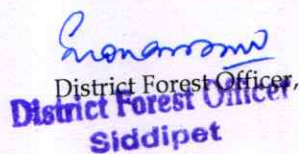 District Forest Officer,
District Forest Officer,
Siddipet